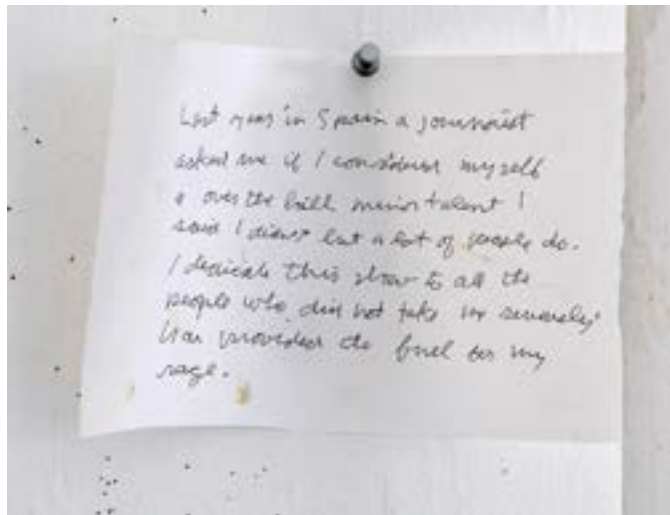 Last year in Spain a journalist
asked me if I considered myself
a over the hill minor talent I
said I didnt but a lot of people do.
I dedicate this show to all the
people who did not take me seriously
has provided the fuel for my
rage.